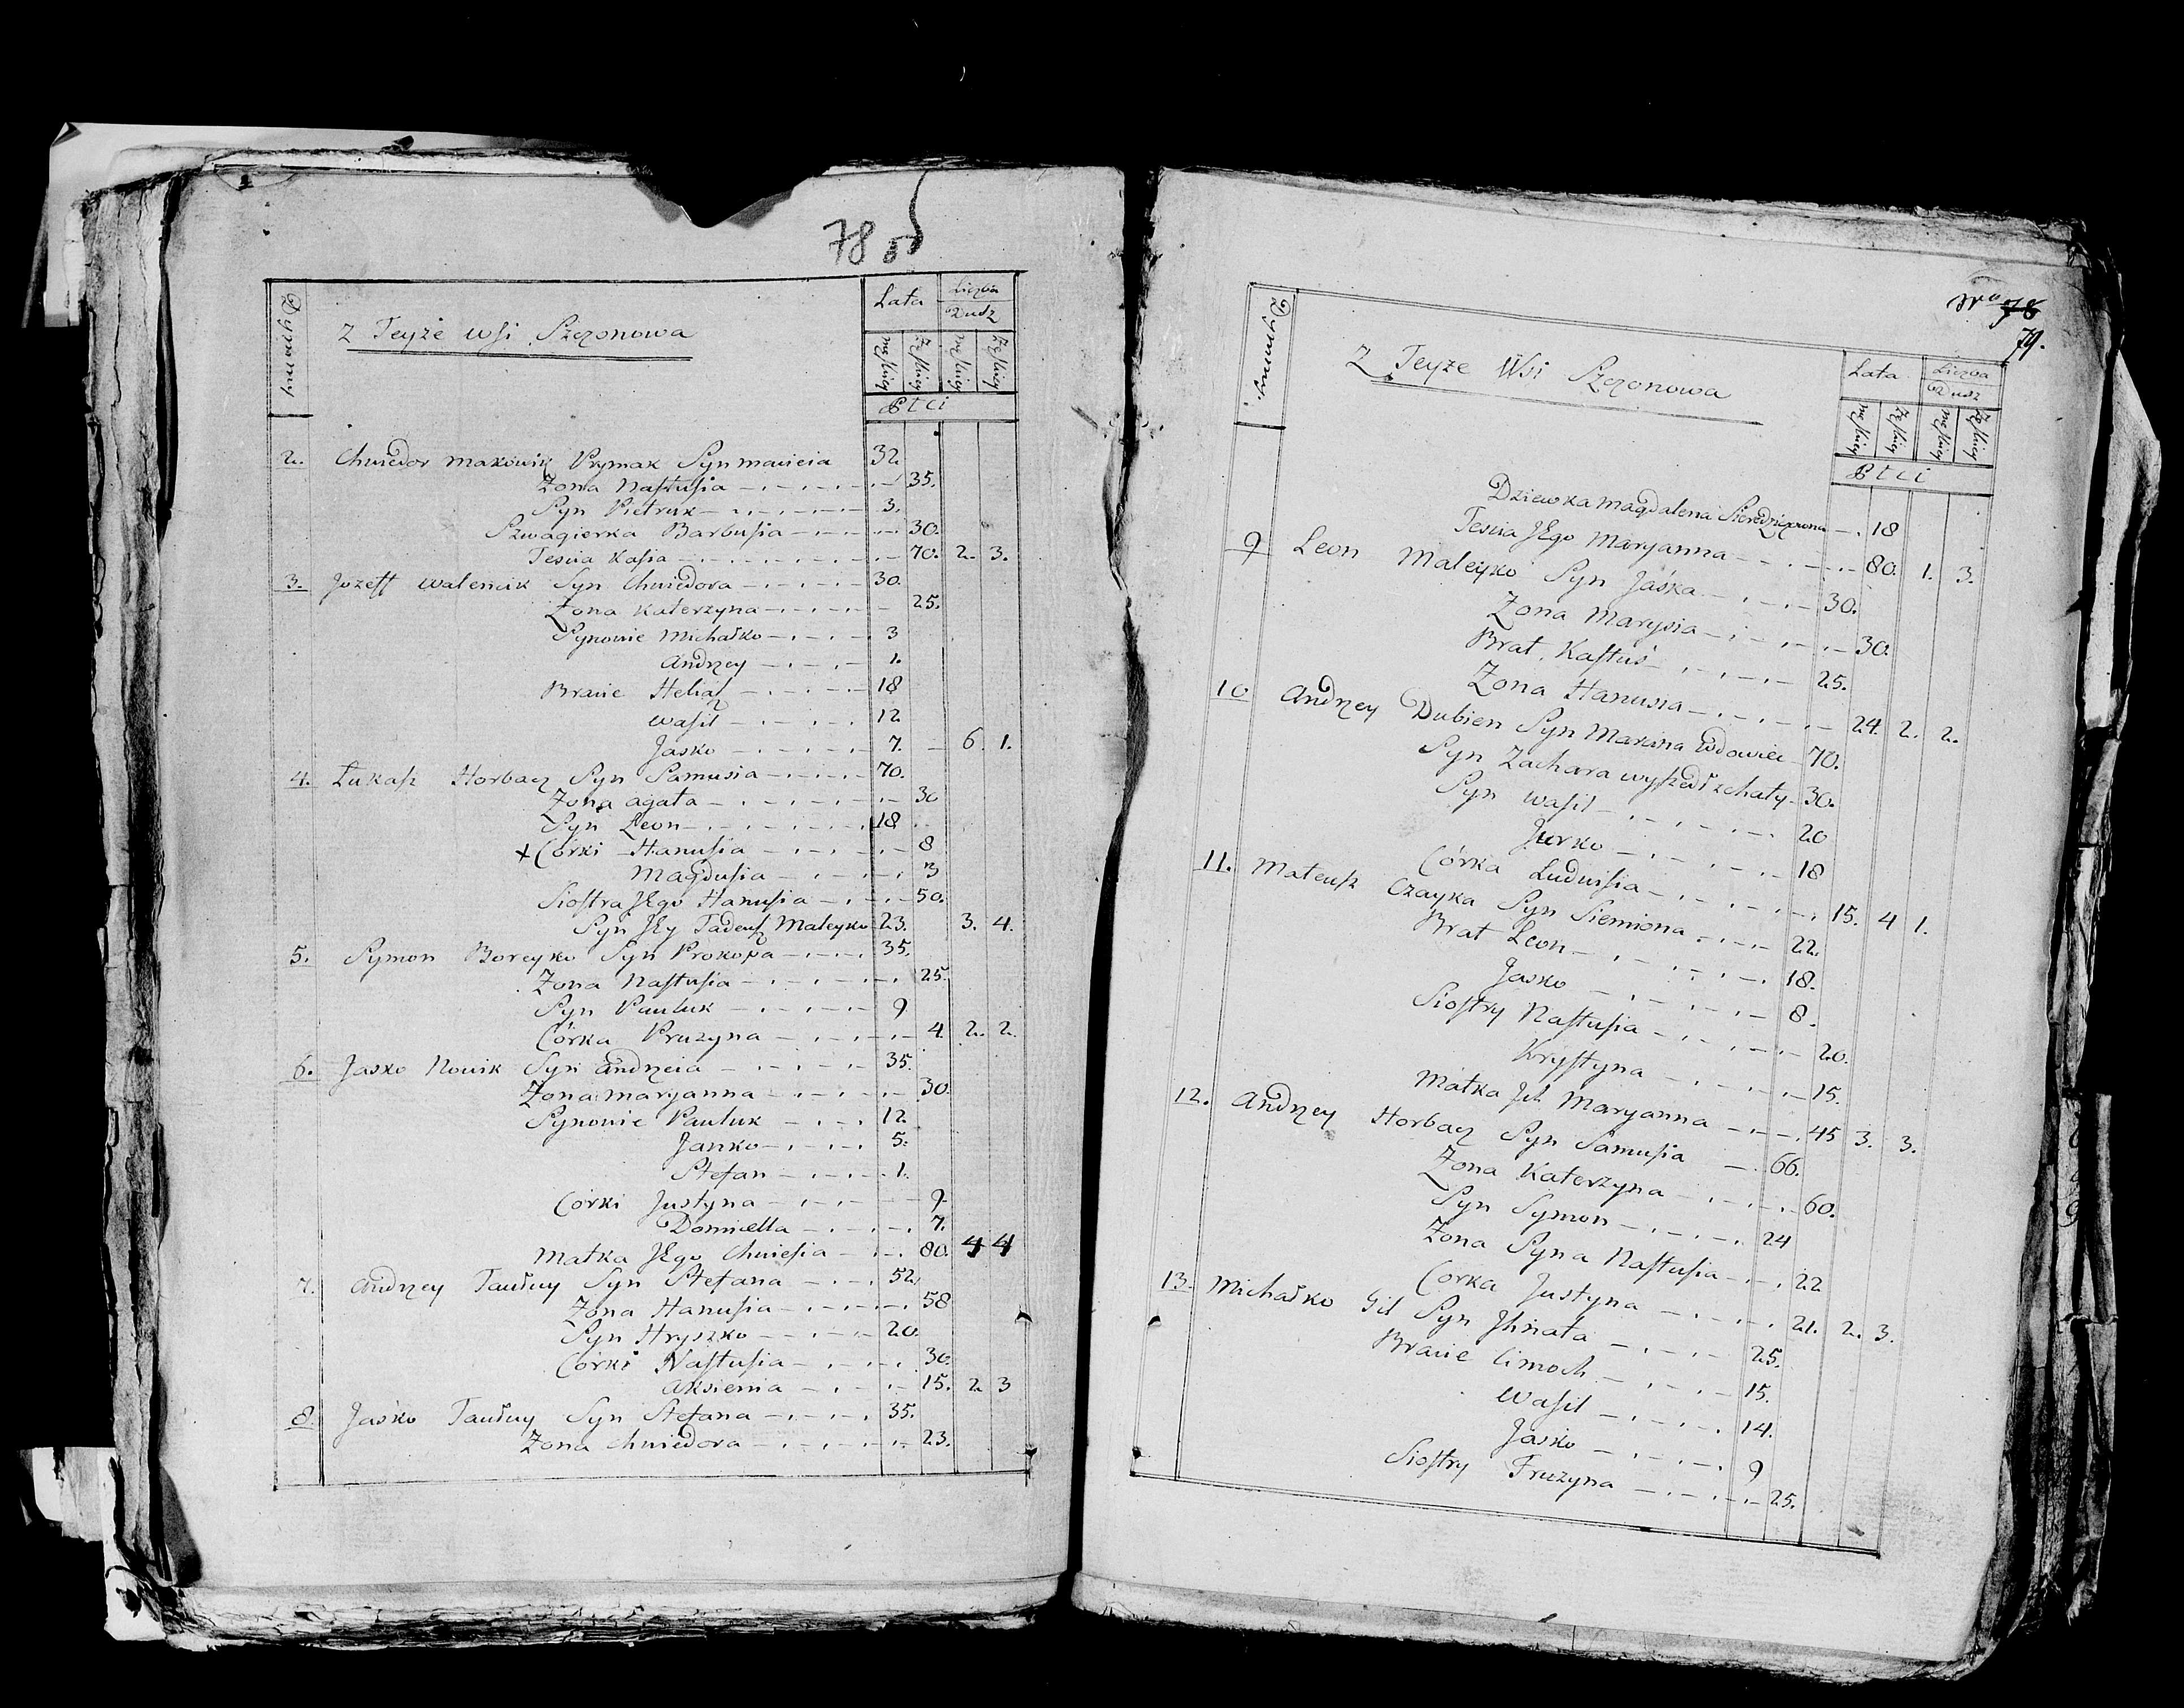 78
Dymmy
Z Teyże wsi Szczonowa
Lata
Liczba Dusz
męskiey żeńskiey męskiey żeńskiey
Płci
2. Chwiedor Makowicz Prymak Syn Macieia 32
Zona Nastusia 35.
Syn Pietruk 3.
Szwagierka Barbusia 30.
Tescia Kasia 70. 2. 3.
3. Jozeff Walencik Syn Chwiedora 30.
Zona Katerzyna 25.
Synowie Michałko 3
Andrzey 1.
Bracie Heliasz 18
Wasil 12
Jasko 7. 6. 1.
4. Łukasz Horbacz Syn Samusia 70.
Zona Agata 30
Syn Leon 18
x Córki Hanusia 8
Magdusia 3
Siostra Jego Hanusia 50.
Syn Jey Tadeusz Maleyko 23. 3. 4.
5. Symon Boreyko Syn Prokopa 35.
Zona Nastusia 25.
Syn Pauluk 9
Córka Pruzyna 4 2. 2.
6. Jasko Nowik Syn Andrzeia 35.
Zona Maryanna 30.
Synowie Pauluk 12.
Janko 5.
Stefan 1.
Córki Justyna 9
Domicella 7.
Matka Jego Chwiesia 80. 4 4
7. Andrzey Syn Stefana 52.
Zona Hanusia 58
Syn Hryszko 20.
Córki Nastusia 30.
Aksienia 15. 2 3
8. Jaśko Syn Stefana 35.
Zona Chwiedora 23.
78
79.
Dymmy.
Z Teyże Wsi Szczonowa
Lata
Liczba Dusz
męskiey żeńskiey męskiey żeńskiey
Płci
Dziewka Magdalena 18
Tescia Jego Maryanna 80. 1. 3.
9 Leon Maleyko Syn Jaśka 30.
Zona Marysia 30.
Brat Kastuś 25.
Zona Hanusia 24. 2. 2.
10 Andrzey Dubien Syn Maxima Wdowiec 70.
Syn Zachara wyszedł z chaty 30.
Syn Wasil 20
Jurko 18
Córka Ludwisia 15. 4 1.
11. Mateusz Czayka Syn Siemiona 22.
Brat Leon 18.
Jasko 8.
Siostry Nastusia 20.
Krystyna 15.
Matka Ich Maryanna 45 3. 3.
12. Andrzey Horbacz Syn Samusia 66.
Zona Katerzyna 60.
Syn Symon 24
Zona Syna Nastusia 22
Corka Justyna 21. 2. 3.
13. Michałko Gil Syn Ihnata 25.
Bracie Cimoch 15.
Wasil 14.
Jasko 9
Siostry Fruzyna 25.